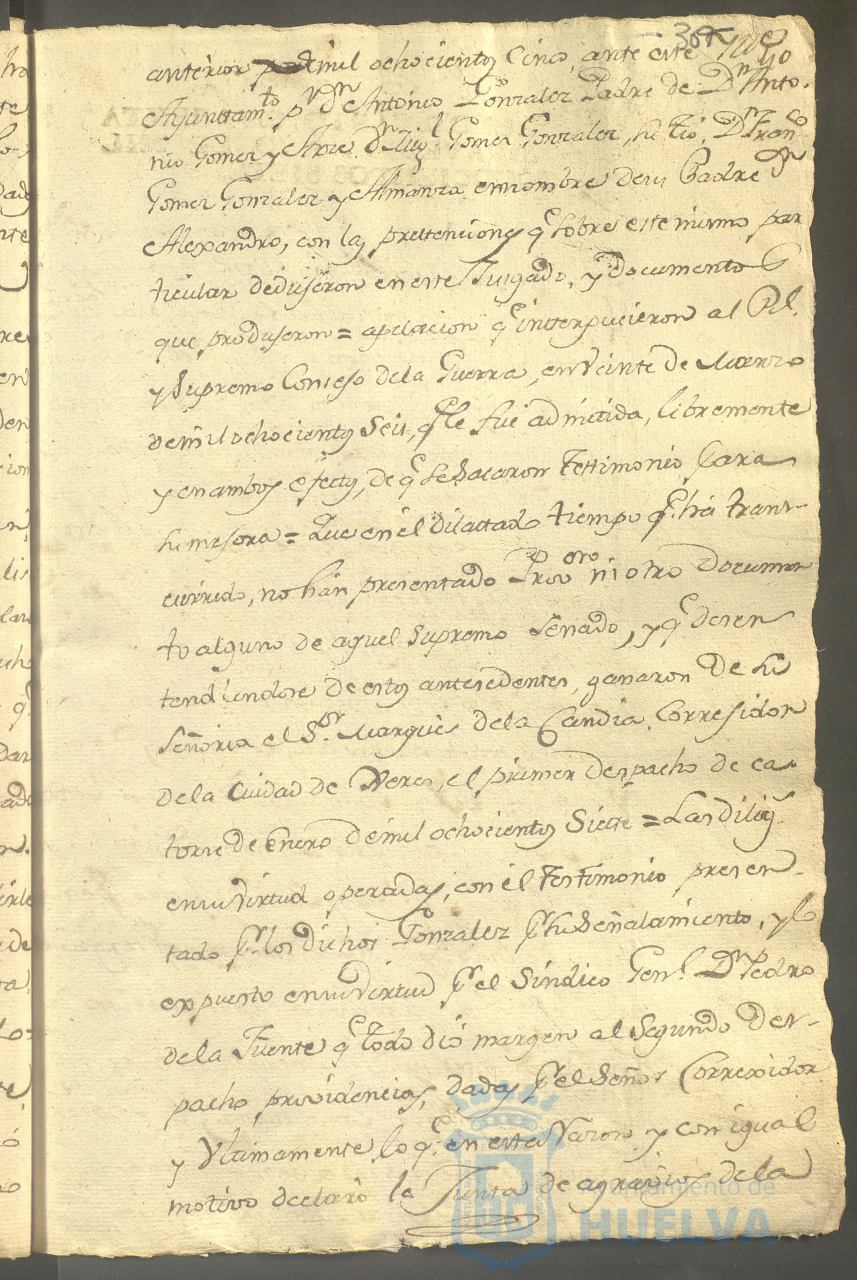 304
anterior de mil ochocientos cinco, ante este
Ayunttam.to p.r d.n Antonio Gonzalez Padre de D.n Anto-
nio Gomez y Arze D.n Luis Gomez Gonzalez, su tio, D.n Fran.co
Gomez Gonzalez y Almanza en nombre de su Padre D.n
Alexandro, con las prettenciones q.e sobre este mismo par
ticular dedujeron en este Juzgado, y Documentos
que produjeron = apelacion q.e intterpucieron al R.l
y Supremo Consejo de la Guerra, en veinte de Marzo
de mil ochocientos Seis, q.e le fue admitida, libremente
y en ambos efectos, de q.e se sacaron Testimonio para
su mejora = Que en el dilattado tiempo q.e há trans-
currido, no hán presentado Prov. ni otro Documen
to alguno de aquel Supremo Senado, y q.e desen
tendiendose de estos antesedentes, ganaron de su
Señoria el S.or Marques de la Candia Corregidor
de la Ciudad de Xerez, el primer despacho de ca
torze de Enero de mil ochocientos Siette = Las dilig.s
en su virtud operadas, con el Testimonio presen-
tado p.r los dichos Gonzalez p.r su Señalamiento, y lo
expuesto en su virtud p.r el Síndico Gen.l D.n Pedro
de la Fuente q.e todo dió margen al Segundo des-
pacho providencias, dadas p.r el Señor Correxidor
y Ultimamente lo q.e en esta razon y con igual
motivo declaró la Junta de agravios de la
Ayuntamiento de
HUELVA